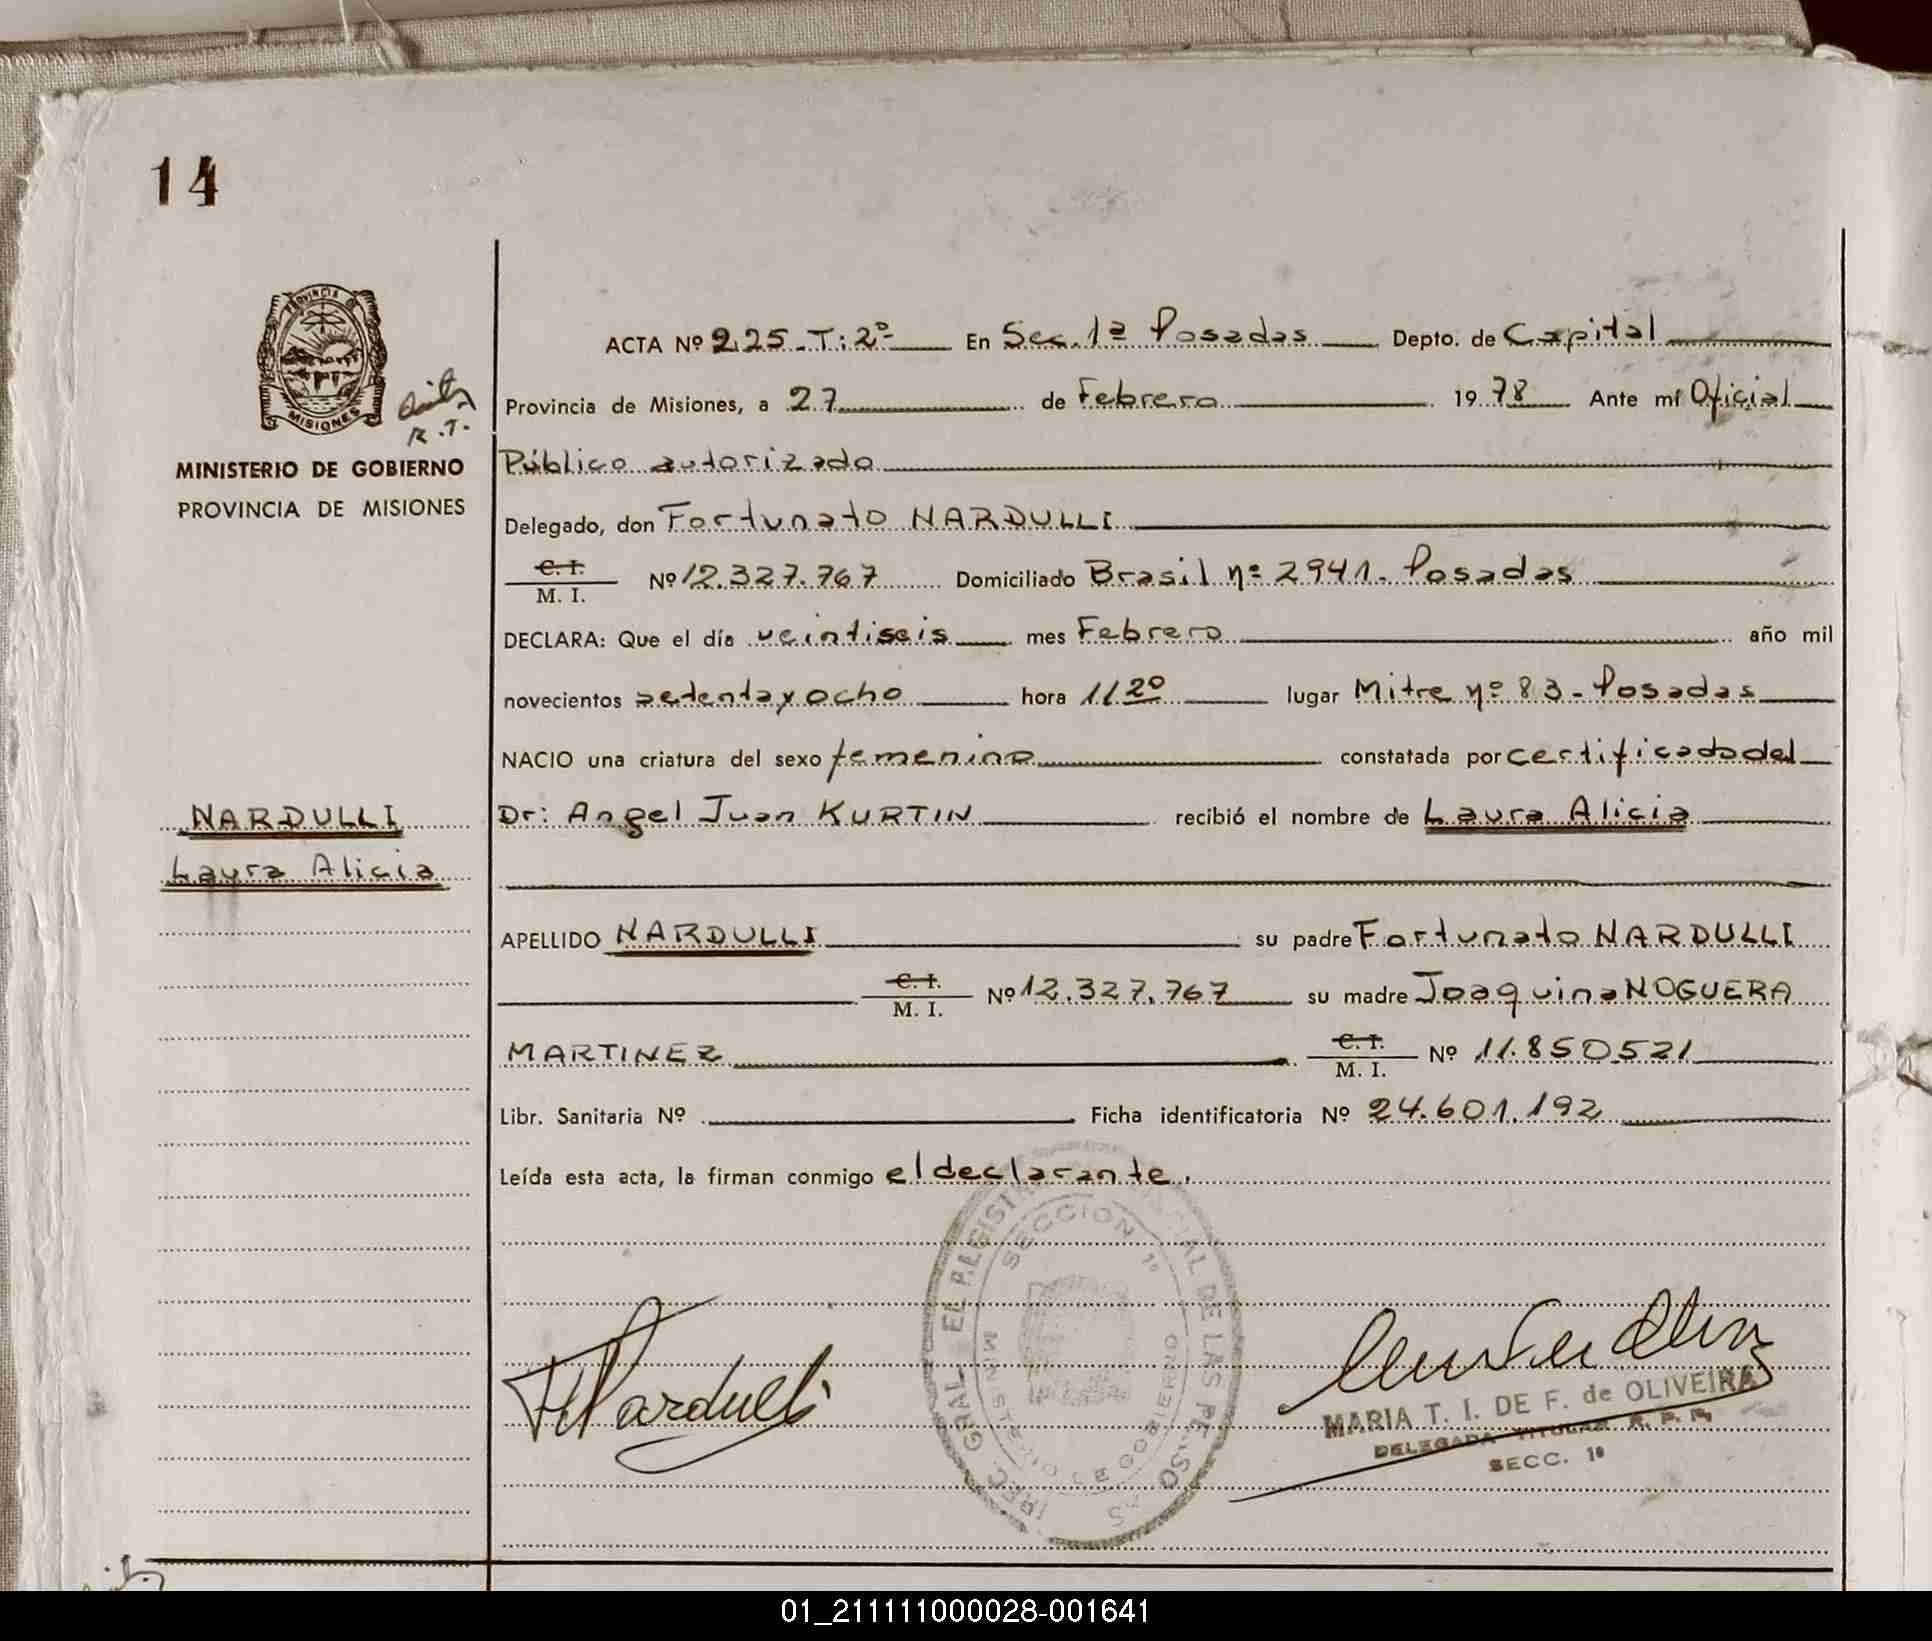 14
PROVINCIA DE
MISIONES
R.T.
MINISTERIO DE GOBIERNO
PROVINCIA DE MISIONES
ACTA Nº 225-T:2º- En Sec. 1ª Posadas Depto. de Capital
Provincia de Misiones, a 27 de Febrero 1978 Ante mí Oficial
Público autorizado
Delegado, don Fortunato NARDULLI
C. I.
M. I. Nº 12.327.767 Domiciliado Brasil nº 2941. Posadas
DECLARA: Que el día veintiseis mes Febrero año mil
novecientos setenta y ocho hora 11 20 lugar Mitre nº 83 - Posadas
NACIO una criatura del sexo femenino constatada por certificado del
NARDULLI
Laura Alicia
Dr: Angel Juan KURTIN recibió el nombre de Laura Alicia
APELLIDO NARDULLI su padre Fortunato NARDULLI
C. I.
M. I. Nº 12.327.767 su madre Joaquina NOGUERA
MARTINEZ C. I.
M. I. Nº 11.850521
Libr. Sanitaria Nº Ficha identificatoria Nº 24.601.192
Leída esta acta, la firman conmigo el declarante.
SECCION 1º
MINISTERIO DE GOBIERNO
GRAL. DE LAS PERSONAS
F Nardulli
MARIA T. I. DE F. de OLIVEIRA
DELEGADA TITULAR R. P. P.
SECC. 1ª
01_211111000028-001641